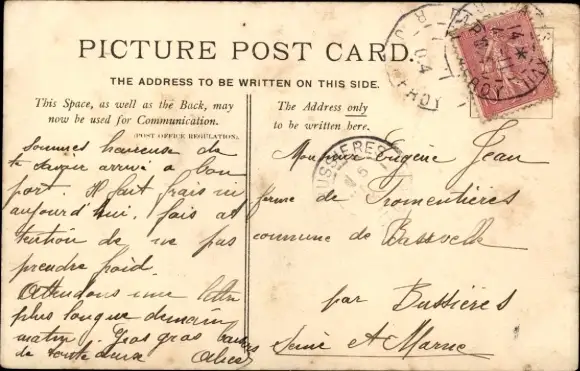 PICTURE POST CARD.
THE ADDRESS TO BE WRITTEN ON THIS SIDE.
This Space, as well as the Back, may
now be used for Communication.
(POST OFFICE REGULATION).
The Address only
to be written here.
Sommes heureuse de
te savoir arrivé à bon
port. Il fait frais
aujourd'hui, fais at
tention de ne pas
prendre froid.
Attendons une lettre
plus longue demain
matin. Gros gros baisers
de toute deux Alice
Monsieur Eugène Jean
ferme de Fromentières
commune de Bassevelle
par Bussières
Seine et Marne
BUSSIERES